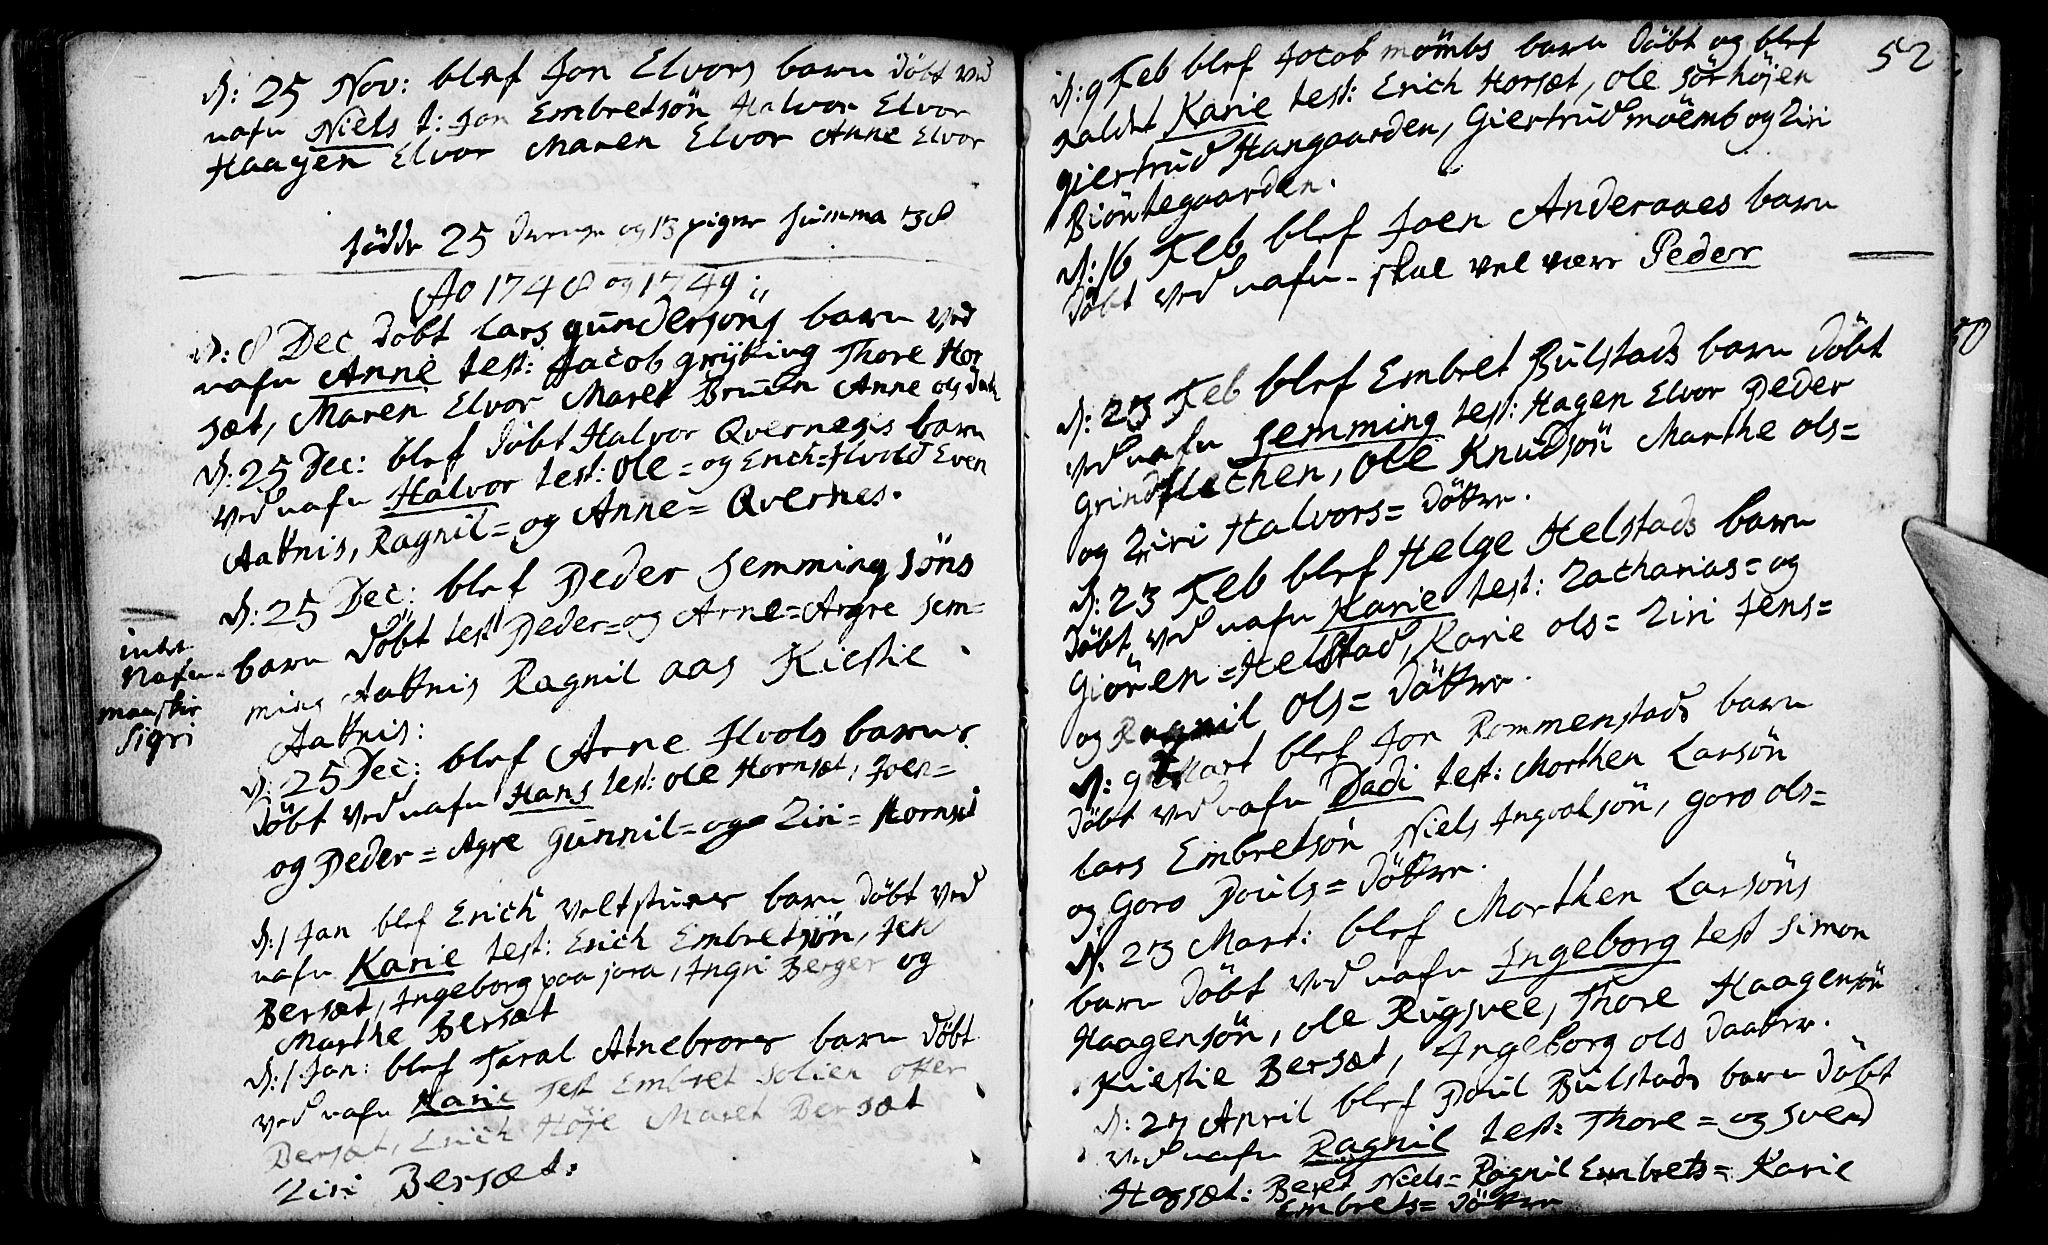 D: 25 Nov: blef Jon Elvors barn döbt ved
nafn Niels t: Jon Embretsön Halvor Elvor
Haagen Elvor Maren Elvor Anne Elvor
födde 25 drenge og 13 piger summa 38
Ao 1748 og 1749
D: 8 Dec döbt Lars gundersöns barn ved
nafn Anne test: Jacob gryting Thore Hor
sæt, Maren Elvor Maret Bruun Anne ols Datt
D: 25 Dec: blef döbt Halvor Qvernesis barn
ved nafn Halvor test: Ole = og Erich = Hvold Even
Aaknis, Ragnil = og Anne = Qvernes.
D: 25 Dec: blef Peder Semming söns
barn döbt test Peder = og Arne = Agre sem=
ming Aaknis Ragnil aas Kiestie
Aaknis:
intet
Nafn
maaskee
Sigri
D: 25 Dec: blef Arne Hvols barn
döbt ved nafn Hans test: Ole Hornsæt, Joen=
og Peder = Agre Gunnil = og Ziri = Hornset
D: 1 Jan blef Erich veltstuens barn döbt ved
nafn Karie test: Erich Embretsön, Jen
Bersæt, Ingeborg paa jora, Ingri Berger og
Marthe Bersæt
D: 1 Jan: blef Taral Atnebroens barn döbt
ved nafn Karie Test Embret Solien
Bersæt, Erich Höje Maret Bersæt
Ziri Bersæt.
52
D: 9 Feb blef Jocob mömbs barn döbt og blef
kaldet Karie test: Erich Horsæt, Ole sörhöjen
giertrud Haugaarden, Giertrud möemb og Ziri
Biöntegaarden.
D: 16 Feb blef Joen Anderaaes barn
döbt ved nafn - skal vel være Peder
D: 23 Feb blef Embret Bulstads barn döbt
ved nafn Semming test: Hagen Elvor Peder
Grindflechen, Ole Knudsön Marthe ols=
og Ziri Halvors = döttre.
D: 23 Feb blef Helge Helstads barn
döbt ved nafn Karie test: Zacharias = og
Giören = Helstad, Karie ols = Ziri Jens=
og Ragnil ols = döttre.
D: 9 Mart blef Jon Rommenstads barn
döbt ved nafn Dadi test: Morthen Larsön
Lars Embretsön Niels Ingvalsön, goro ols=
og Goro Pouls = döttre.
D. 23 Mart: blef Morthen Larsöns
barn döbt ved nafn Ingeborg test Simon
Haagensön, Ole Rugsvee, Thore Haagensön
Kiestie Bersæt, Ingeborg ols daatter.
D: 27 April blef Poul Bulstads barn döbt
ved nafn Ragnil test: Thore = og Svend
Horsæt: Beret Niels = Ragnil Embrets = Karie
Embrets = döttre